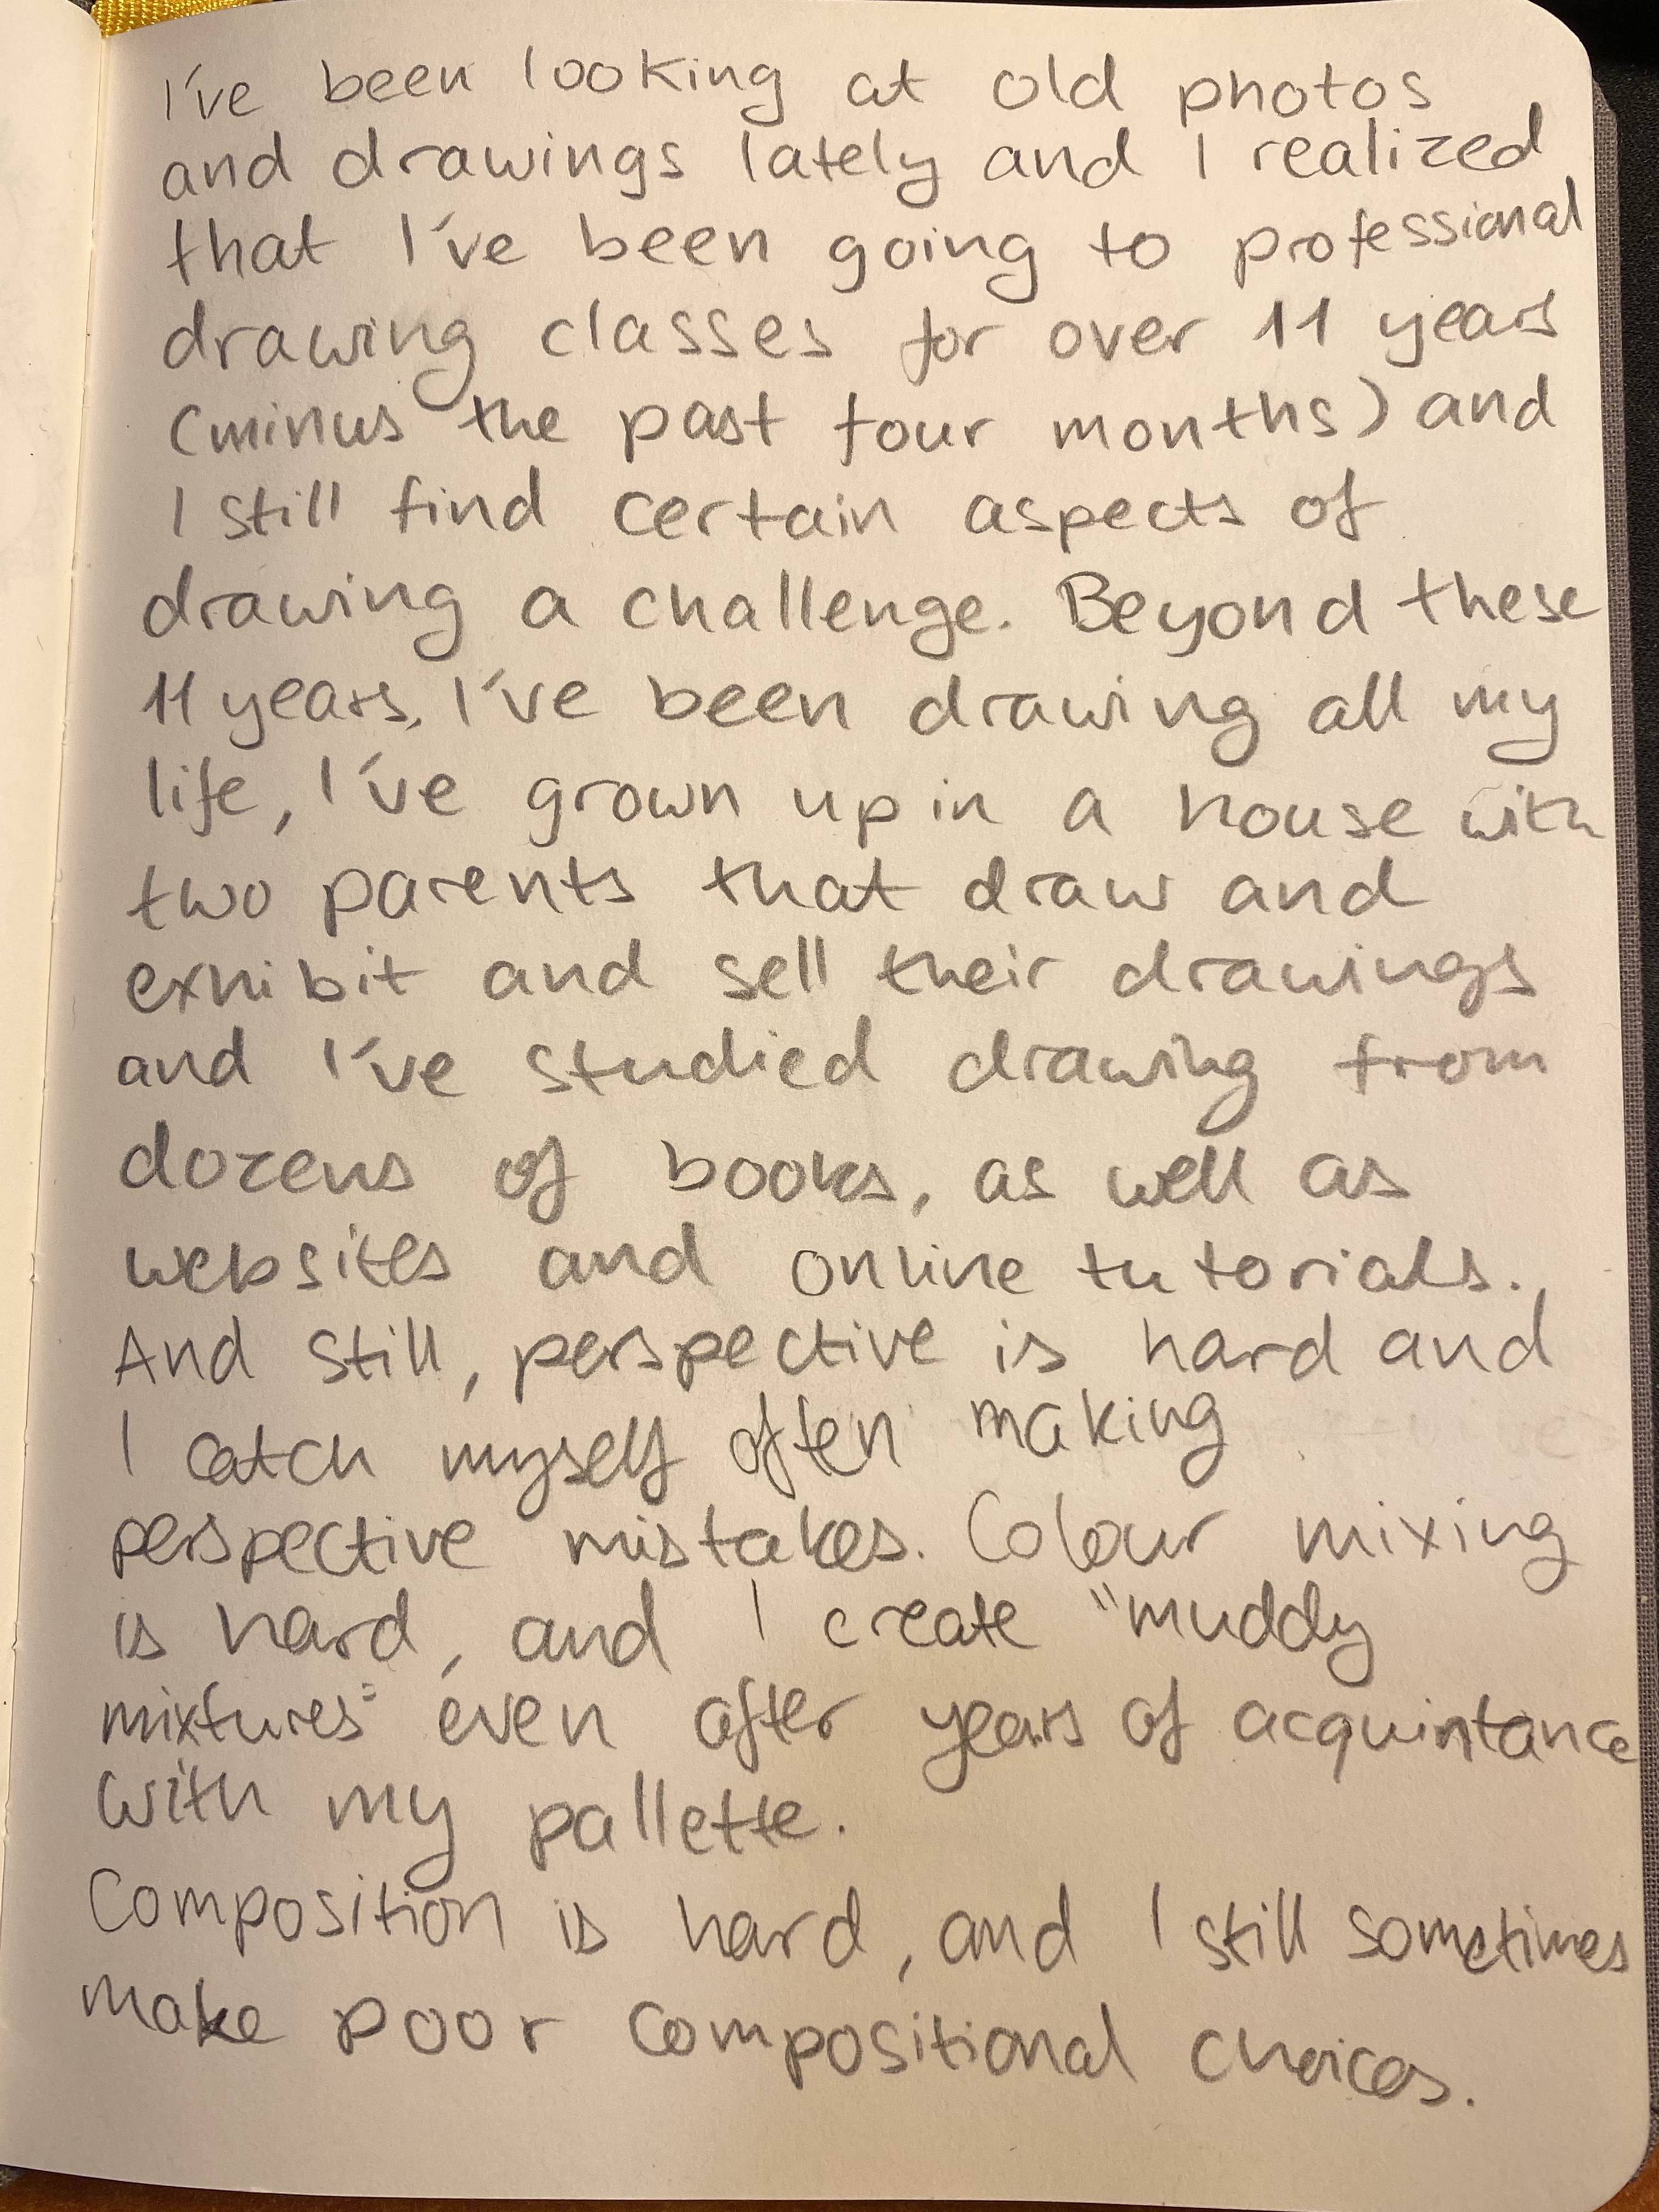 I've been looking at old photos
and drawings lately and I realized
that I've been going to professional
drawing classes for over 11 years
(minus the past four months) and
I still find certain aspects of
drawing a challenge. Beyond these
11 years, I've been drawing all my
life, I've grown up in a house with
two parents that draw and
exhibit and sell their drawings
and I've studied drawing from
dozens of books, as well as
websites and online tutorials.
And still, perspective is hard and
I catch myself often making
perspective mistakes. Colour mixing
is hard, and I create "muddy
mixtures" even after years of acquintance
with my pallette.
Composition is hard, and I still sometimes
make poor compositional choices.